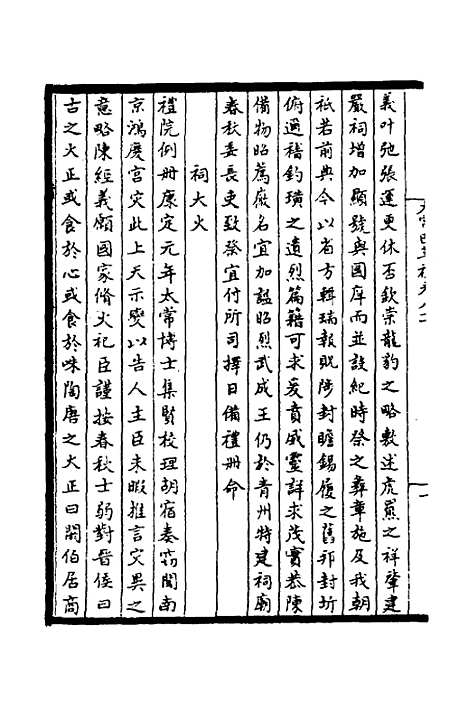 義叶弛張運更休否欽崇龍豹之略敷述虎羆之祥肇建
嚴祠增加顯號與國庠而並設紀時祭之彝章施及我朝
祇若前典今以省方輯瑞報既陟封瞻錫履之舊邦封圻
俯邇稽釣璜之遺烈篇籍可求爰賁威靈詳求茂實恭陳
備物昭薦厥名宜加諡昭烈武成王仍於青州特建祠廟
春秋委長吏致祭宜付所司擇日備禮冊命
祠大火
禮院例冊康定元年太常博士集賢校理胡宿奏竊聞南
京鴻慶宮灾此上天示變以告人主臣未暇推言灾異之
意略陳經義願國家脩火祀臣謹按春秋士弱對晉侯曰
古之火正或食於心或食於咮陶唐之火正曰閼伯居商